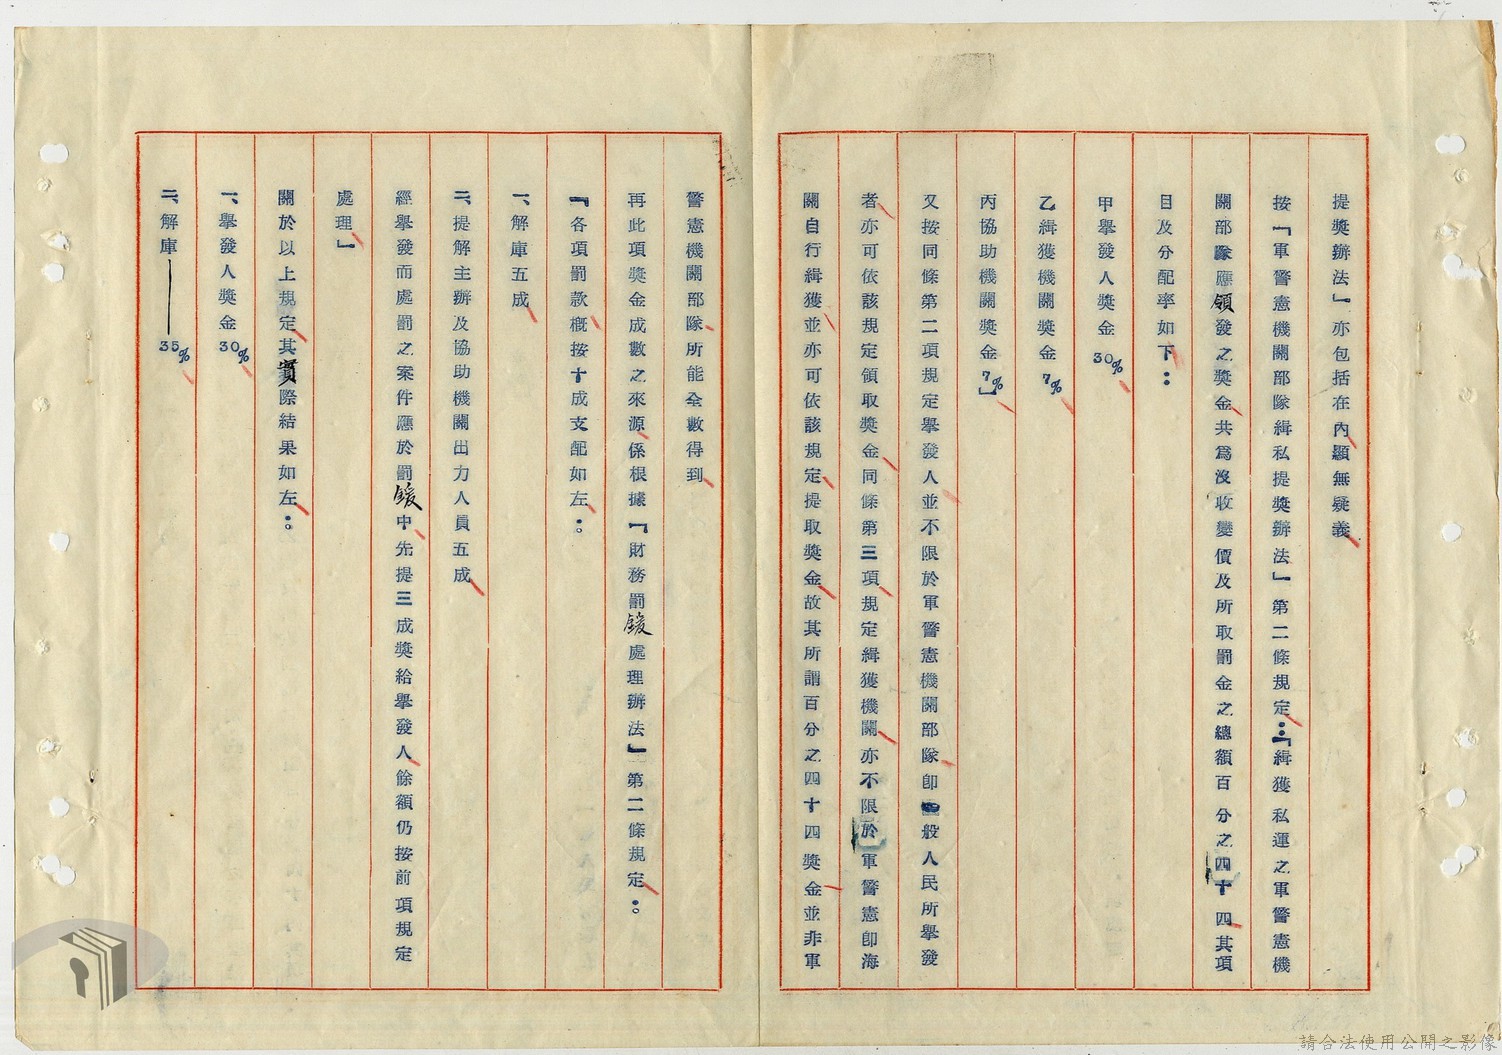 提獎辦法」亦包括在內顯無疑義
按「軍警憲機關部隊緝私提獎辦法」第二條規定：「緝獲私運之軍警憲機
關部隊應領發之獎金共為沒收變價及所取罰金之總額百分之四十四其項
目及分配率如下：
甲舉發人獎金30%
乙緝獲機關獎金7%
丙協助機關獎金7%」
又按同條第二項規定舉發人並不限於軍警憲機關部隊卽一般人民所舉發
者亦可依該規定領取獎金同條第三項規定緝獲機關亦不限於軍警憲卽海
關自行緝獲並亦可依該規定提取獎金故其所謂百分之四十四獎金並非軍
警憲機關部隊所能全數得到
再此項獎金成數之來源係根據「財務罰鍰處理辦法」第二條規定：
「各項罰款概按十成支配如左：
一、解庫五成
二、提解主辦及協助機關出力人員五成
經舉發而處罰之案件應於罰鍰中先提三成獎給舉發人餘額仍按前項規定
處理」
關於以上規定其實際結果如左：
一、舉發人獎金30%
二、解庫——35%
請合法使用公開之影像